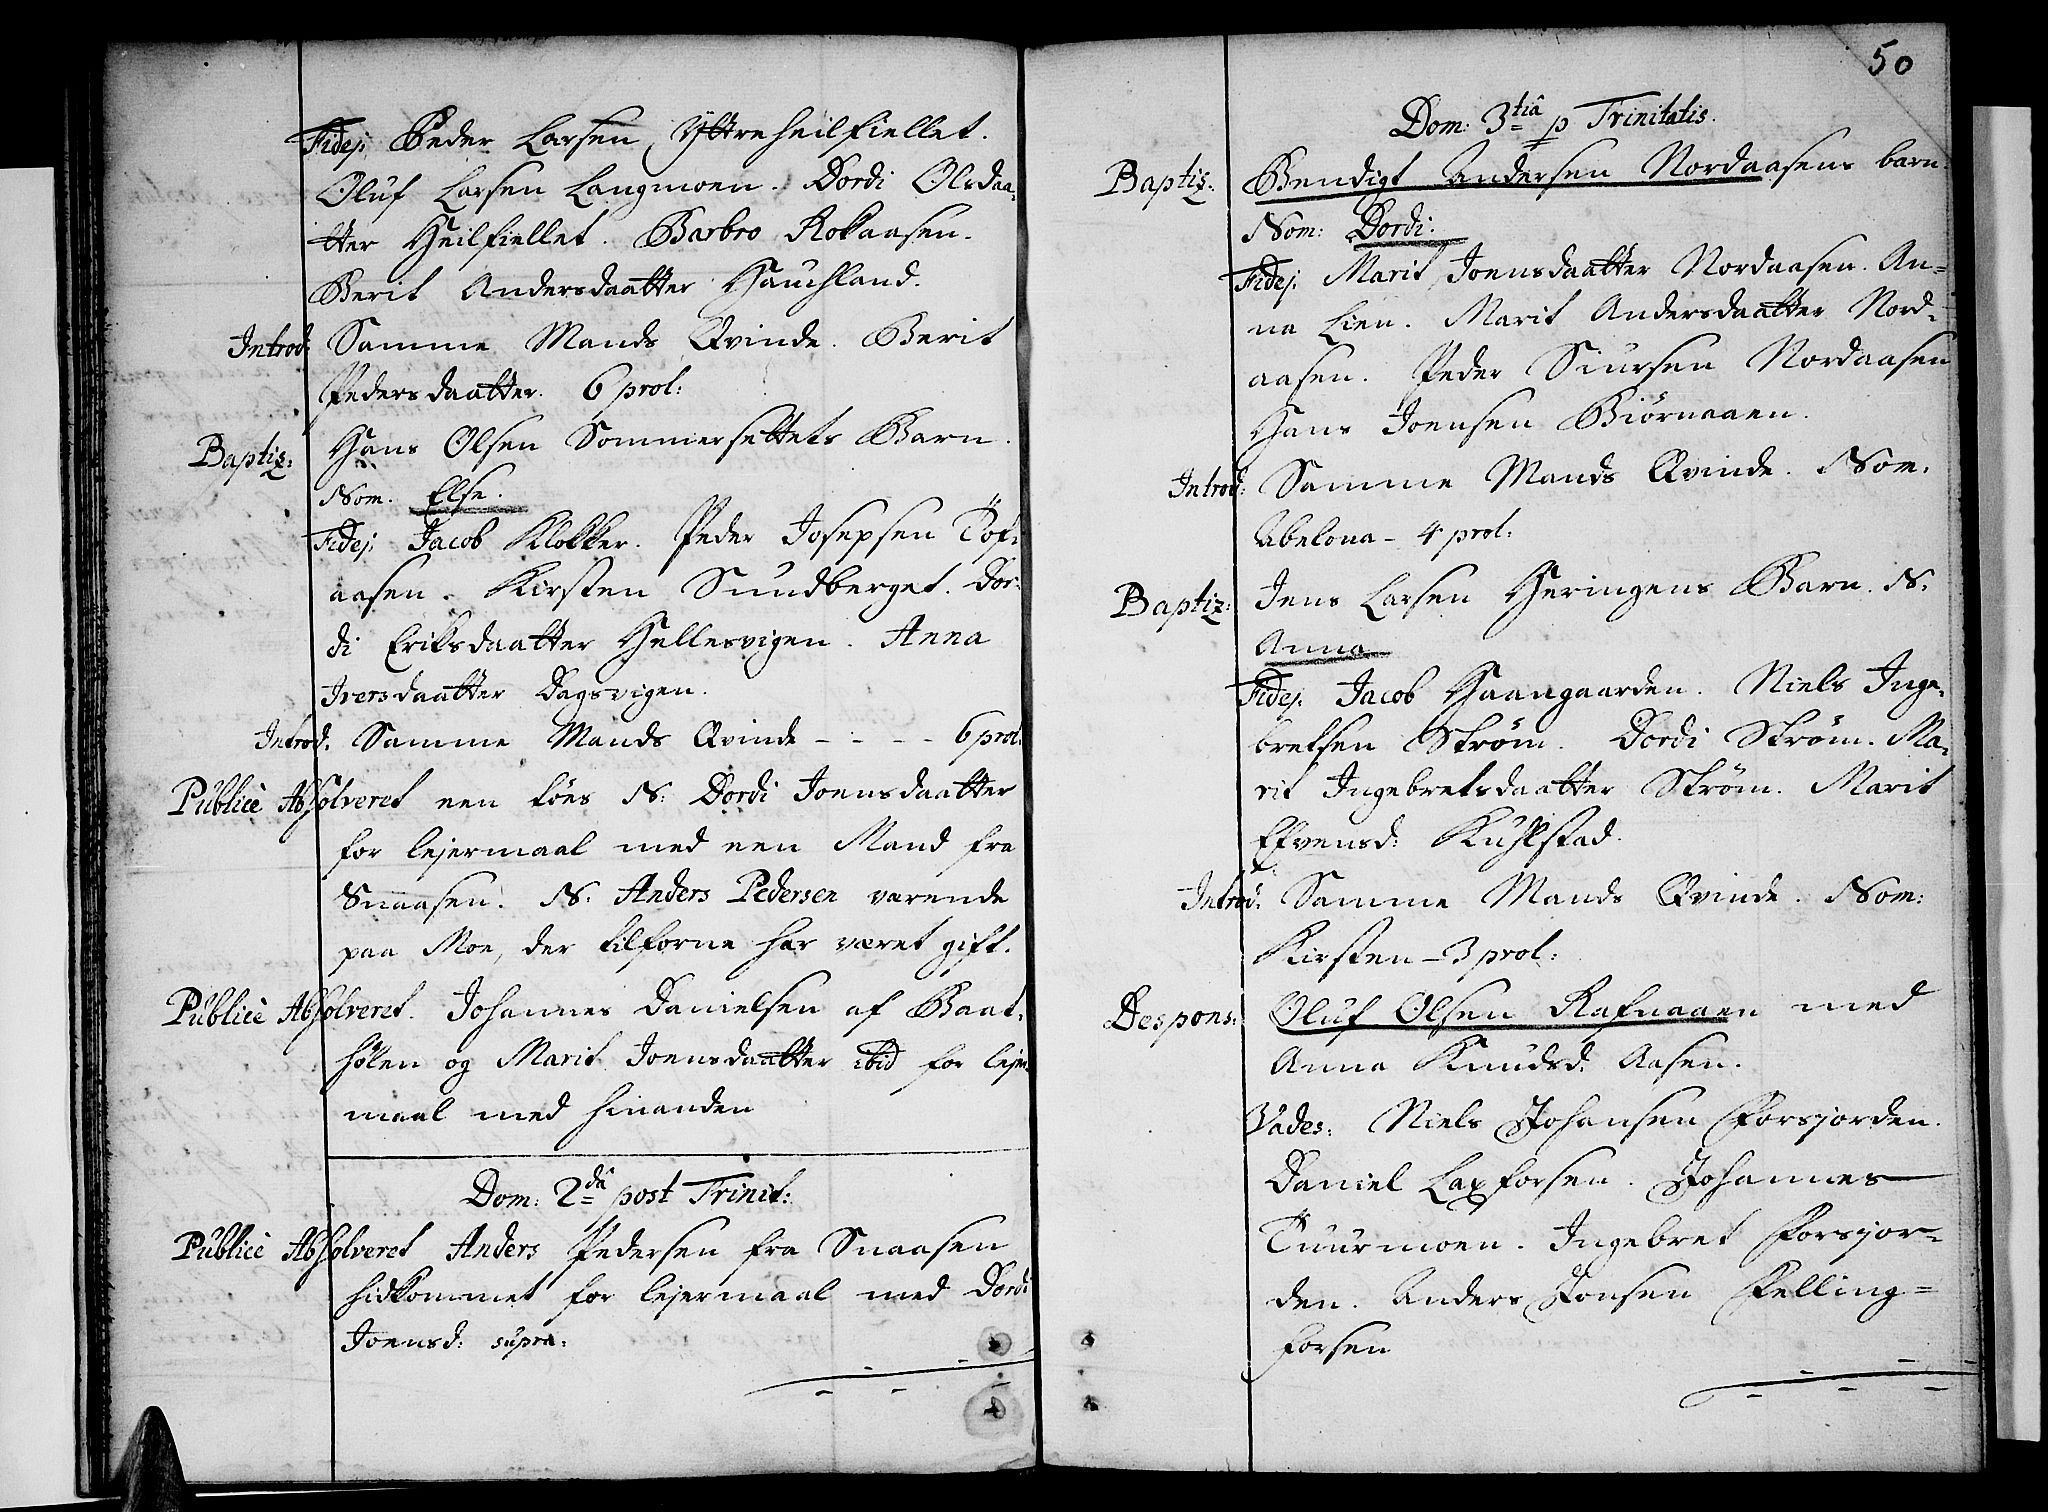 Fidej: Peder Larsen Yttreheilfiellet.
Oluf Larsen Langmoen. Dordi Olsdaa-
tter Heilfiellet. Barbro Rokaasen.
Berit Andersdaatter Hauchland.
Introd: Samme Mands Qvinde. Berit
Pedersdaatter. 6 prol:
Baptiz: Hans Olsen Sommersettets Barn.
Nom. Else.
Fidej: Jacob Klokker. Peder Josepsen Töf-
aasen. Kirsten Sundberget. Dor-
di Eriksdaatter Hellesvigen. Anna
Iversdaatter Dagsvigen.
Introd. Samme Mands Qvinde - - - - 6 prol:
Publicè Absolveret een löes N: Dordi Joensdaatter
for lejermaal med een Mand fra
Snaasen. N. Anders Pedersen værende
paa Moe, der tilforne har været gift.
Publicè Absolveret. Johannes Danielsen af Baat-
hölen og Marit Joensdaatter ibid for lejer
maal med hinanden
Dom: 2dâ post Trinit:
Publicè Absolveret Anders Pedersen fra Snaasen
hidkommet for lejermaal med Dordi
Joensd: supra.
50
Dom: 3tiâ p Trinitatis.
Baptiz: Bendigt Andersen Nordaasens barn.
Nom: Dordi.
Fidej: Marit Joensdaatter Nordaasen. An-
na Lien. Marit Andersdaatter Nord-
aasen. Peder Siursen Nordaasen
Hans Joensen Biörnaaen.
Introd: Samme Mands Qvinde. Nom:
Abelona - 4 prol:
Baptiz: Jens Larsen Heringens Barn. N.
Anna
Fidej: Jacob Haangaarden. Niels Inge-
bretsen Strøm. Dordi Strøm. Ma-
rit Ingebretsdaatter Strøm. Marit
Efvensd: Kuhlstad.
Introd. Samme Mands Qvinde. Nom:
Kirsten - 3 prol:
Despons: Oluf Olsen Rafnaaen med
Anna Knudsd. Aasen.
Vades: Niels Johansen Forsjorden.
Daniel Laxforsen. Johannes
Tuurmoen. Ingebret Forsjor-
den. Anders Jonsen Felling-
forsen